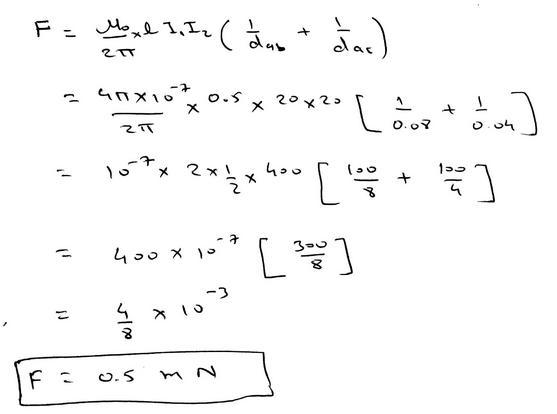 F = μ₀/2π × l I₁I₂ ( 1/dab + 1/dac )
= 4π×10⁻⁷/2π × 0.5 × 20 × 20 [ 1/0.08 + 1/0.04 ]
= 10⁻⁷ × 2 × 1/2 × 400 [ 100/8 + 100/4 ]
= 400 × 10⁻⁷ [ 300/8 ]
= 4/8 × 10⁻³
F = 0.5 mN